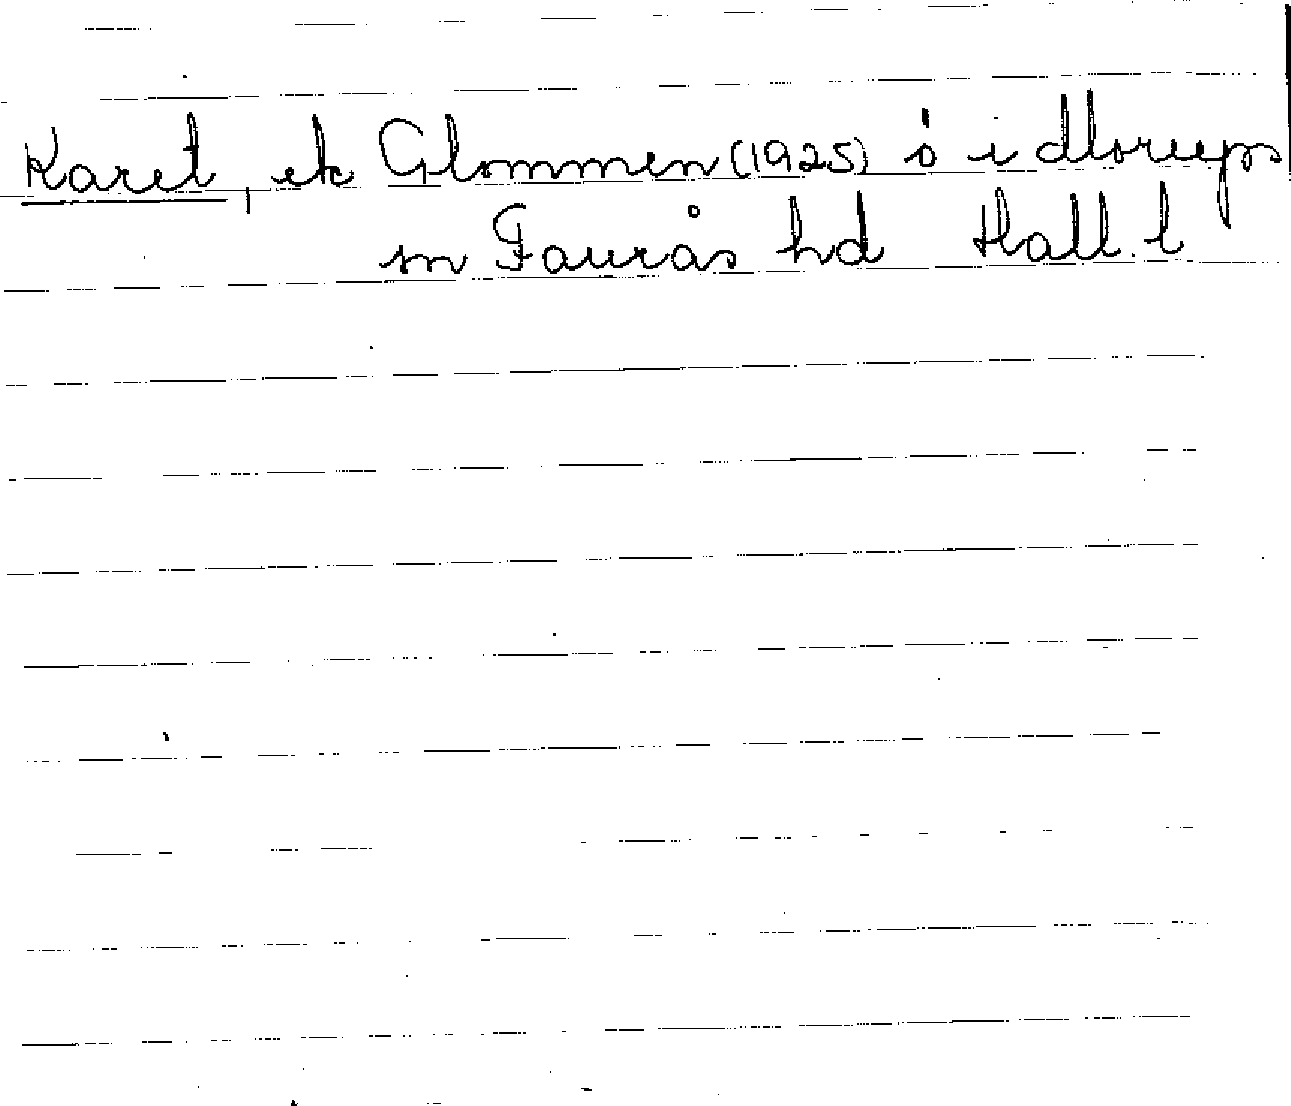 Karet, ek Glommen (1925) ö i Morups
sn Faurås hd Hall. l